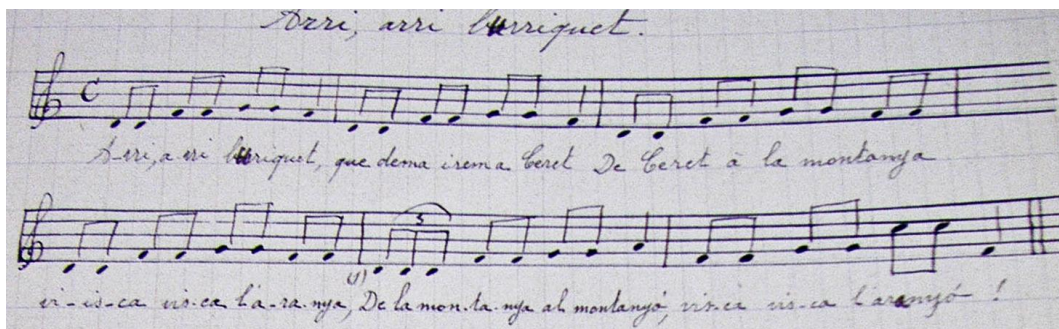 Arri, arri burriquet.
C
A-rri, a rri burriquet, que dema irem a Ceret De Ceret à la montanya
3
vi-is-ca vis-ca l'a-ra-nya, De la mon-ta-nya al montanyó, vis-ca vis-ca l'aranyó !